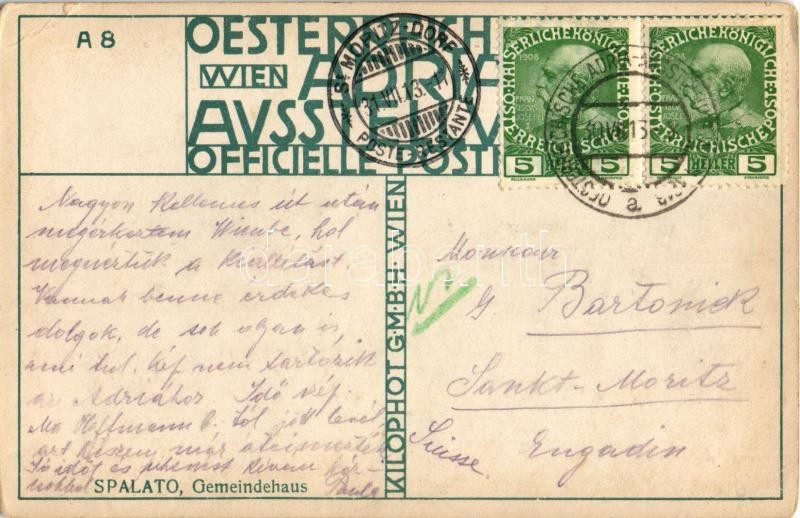 A 8
OESTERREICHISCHE
WIEN ADRIA
AVSSTELLVNG
OFFICIELLE POSTK
ST MORITZ-DORF
31.VII.13.-17
POSTE-RESTANTE
KAISERLICHE KÖNIGLICHE
ÖSTERREICHISCHE POST
1908
5 HELLER 5
KAISERLICHE KÖNIGLICHE
ÖSTERREICHISCHE POST
1908
5 HELLER 5
30.VII.13
a
Nagyon kellemes út után
megérkeztem Wienbe, hol
megnéztük a kiállítást.
Vannak benne érdekes
dolgok, de sok olyan is,
ami tul.kép nem tartozik
az Adriához. Idő szép.
Ma Hoffmann B. től jött levél,
azt hiszem, már
Jó időt és kíván
Paula
SPALATO, Gemeindehaus
KILOPHOT G.M.B.H. WIEN
Monsieur
G. Bartonick
Sankt-Moritz
Engadin
Suisse.
darabanth